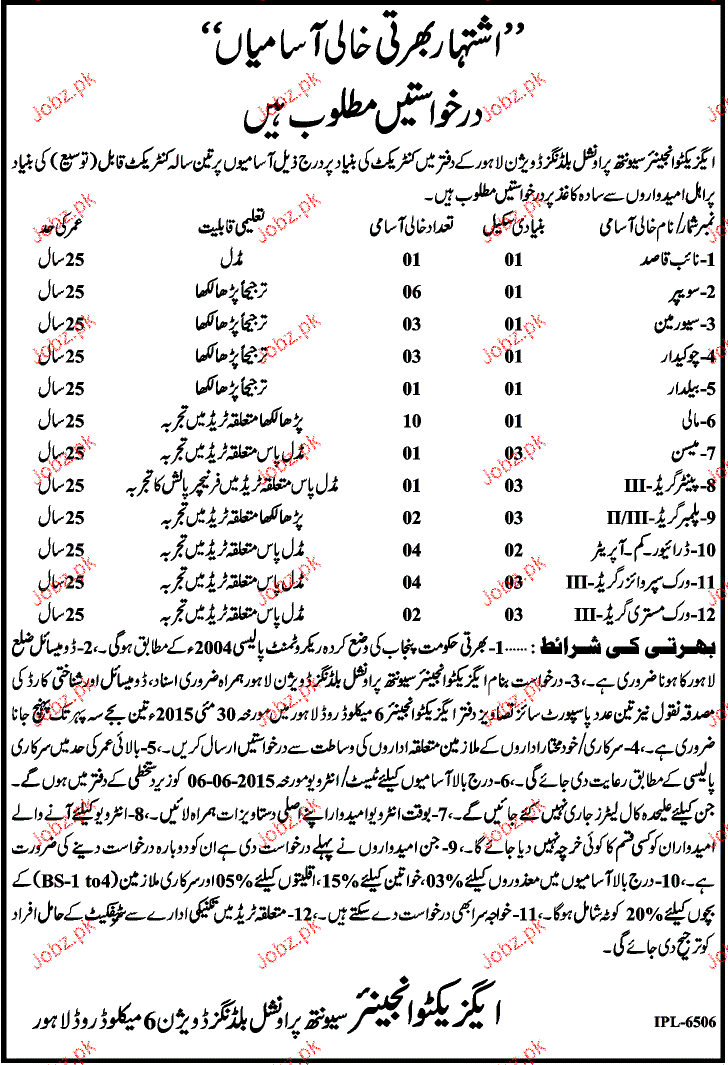 ”اشتہار بھرتی خالی آسامیاں“
درخواستیں مطلوب ہیں
ایگزیکٹو انجینئر سیونتھ پراونشل بلڈنگز ڈویژن لاہور کے دفتر میں کنٹریکٹ کی بنیاد پر درج ذیل آسامیوں پر تین سالہ کنٹریکٹ قابل (توسیع) کی بنیاد
پر اہل امیدواروں سے سادہ کاغذ پر درخواستیں مطلوب ہیں۔
نمبر شمار/ نام خالی آسامی بنیادی سکیل تعداد خالی آسامی تعلیمی قابلیت عمر کی حد
1- نائب قاصد 01 01 مڈل 25 سال
2- سویپر 01 06 ترجیحاً پڑھا لکھا 25 سال
3- سیور مین 01 03 ترجیحاً پڑھا لکھا 25 سال
4- چوکیدار 01 03 ترجیحاً پڑھا لکھا 25 سال
5- بیلدار 01 01 ترجیحاً پڑھا لکھا 25 سال
6- مالی 01 10 پڑھا لکھا متعلقہ ٹریڈ میں تجربہ 25 سال
7- میسن 03 01 مڈل پاس متعلقہ ٹریڈ میں تجربہ 25 سال
8- پینٹر گریڈ-III 03 01 مڈل پاس متعلقہ ٹریڈ میں فرنیچر پالش کا تجربہ 25 سال
9- پلمبر گریڈ-II/III 03 02 پڑھا لکھا متعلقہ ٹریڈ میں تجربہ 25 سال
10- ڈرائیور-کم-آپریٹر 02 04 مڈل پاس متعلقہ ٹریڈ میں تجربہ 25 سال
11- ورک سپروائزر گریڈ-III 03 04 مڈل پاس متعلقہ ٹریڈ میں تجربہ 25 سال
12- ورک مستری گریڈ-III 03 02 مڈل پاس متعلقہ ٹریڈ میں تجربہ 25 سال
بھرتی کی شرائط : ......1- بھرتی حکومت پنجاب کی وضع کردہ ریکروٹمنٹ پالیسی 2004ء کے مطابق ہوگی۔، 2- ڈومیسائل ضلع
لاہور کا ہونا ضروری ہے۔، 3- درخواست بنام ایگزیکٹو انجینئر سیونتھ پراونشل بلڈنگز ڈویژن لاہور ہمراہ ضروری اسناد، ڈومیسائل اور شناختی کارڈ کی
مصدقہ نقول نیز تین عدد پاسپورٹ سائز تصاویر دفتر ایگزیکٹو انجینئر 6 میکلوڈ روڈ لاہور میں مورخہ 30 مئی 2015ء تین بجے سہ پہر تک پہنچ جانا
ضروری ہے۔، 4- سرکاری/خود مختار اداروں کے ملازمین متعلقہ اداروں کی وساطت سے درخواستیں ارسال کریں۔، 5- بالائی عمر کی حد میں سرکاری
پالیسی کے مطابق رعایت دی جائے گی۔، 6- درج بالا آسامیوں کیلئے ٹیسٹ/انٹرویو مورخہ 06-06-2015 کو زیر دستخطی کے دفتر میں ہوں گے۔
جن کیلئے علیحدہ کال لیٹرز جاری نہیں کئے جائیں گے۔، 7- بوقت انٹرویو امیدوار اپنے اصلی دستاویزات ہمراہ لائیں۔، 8- انٹرویو کیلئے آنے والے
امیدواران کو کسی قسم کا کوئی خرچہ نہیں دیا جائے گا۔، 9- جن امیدواروں نے پہلے درخواست دی ہے ان کو دوبارہ درخواست دینے کی ضرورت
ہے۔، 10- درج بالا آسامیوں میں معذوروں کیلئے 03%، خواتین کیلئے 15%، اقلیتوں کیلئے 05% اور سرکاری ملازمین (BS-1 to4) کے
بچوں کیلئے 20% کوٹہ شامل ہوگا۔، 11- خواجہ سرا بھی درخواست دے سکتے ہیں۔، 12- متعلقہ ٹریڈ میں تکنیکی ادارے سے سرٹیفکیٹ کے حامل افراد
کو ترجیح دی جائے گی۔
ایگزیکٹو انجینئر سیونتھ پراونشل بلڈنگز ڈویژن 6 میکلوڈ روڈ لاہور
IPL-6506
Jobz.pk